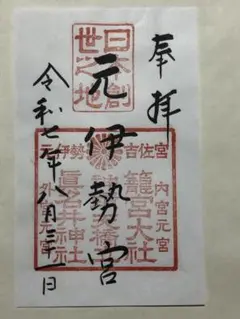 奉拝
日本創
世之地
元伊勢宮
元伊勢
吉佐宮
内宮元宮
籠宮大社
天橋
眞名井神社
外宮元宮
令和七年八月三十一日